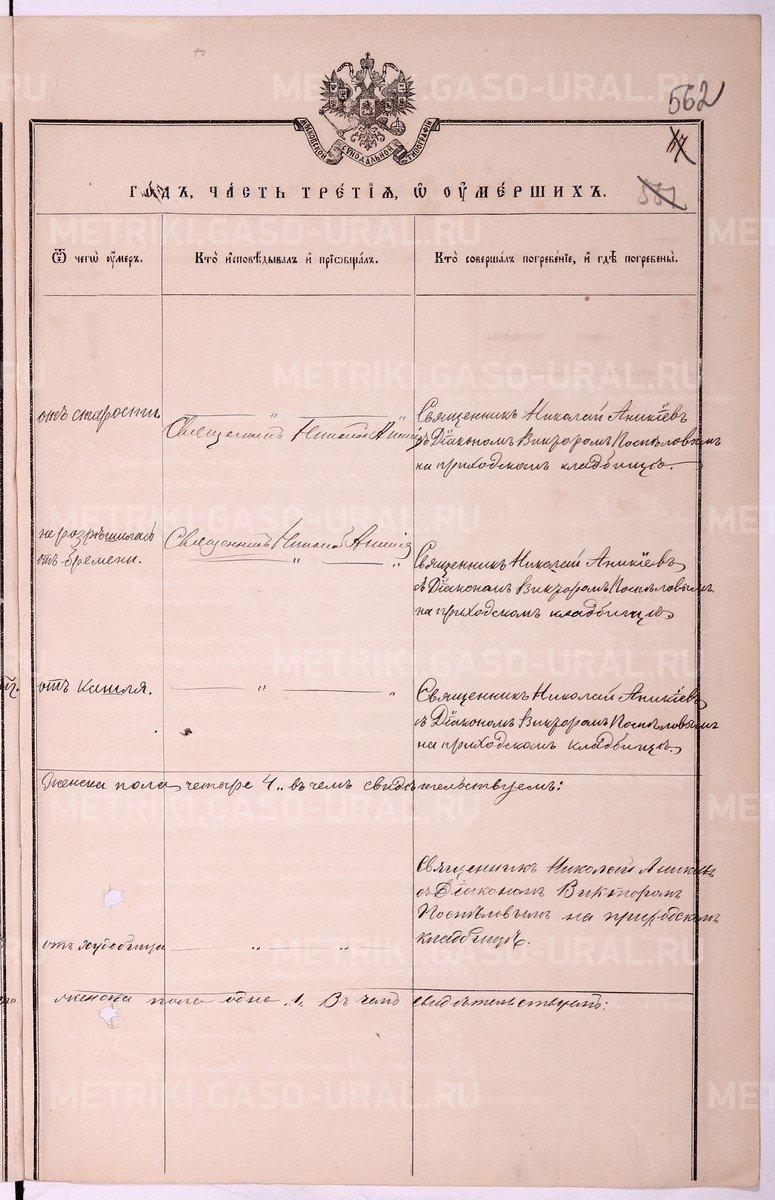 562
МОСКОВСКОЙ СѴНОДАЛЬНОЙ ТИПОГРАФІИ
557
го́дъ, ча́сть тре́тїѧ, ѡ҆ ᲂу҆ме́ршихъ.
Ѿ чегѡ̀ ᲂу҆́меръ.
Кто̀ и҆сповѣ́дывалъ и҆ прїѻбща́лъ.
Кто̀ соверша́лъ погребе́нїе, и҆ гдѣ̀ погребены̀.
отъ старости
— „ — „
Священникъ Николай
Священникъ Николай Аникіевъ
съ Діакономъ Викторомъ Поспѣловымъ
на приходскомъ кладбищѣ.
не розрѣшилась
отъ бремени.
Священникъ Николай
— „ — „
Священникъ Николай Аникіевъ
съ Діакономъ Викторомъ Поспѣловымъ
на приходскомъ кладбищѣ
отъ кашля.
— „ — „
Священникъ Николай Аникіевъ
съ Діакономъ Викторомъ Поспѣловымъ
на приходскомъ кладбищѣ
Женска пола четыре 4„ въ чемъ свидѣтельствуемъ:
Священникъ Николай Аникіевъ
съ Діакономъ Викторомъ
Поспѣловымъ на приходскомъ
кладбищѣ.
отъ худобища
— „ — „
женска пола одна „1„ Въ чемъ свидѣтельствуемъ:
METRIKI.GASO-URAL.RU